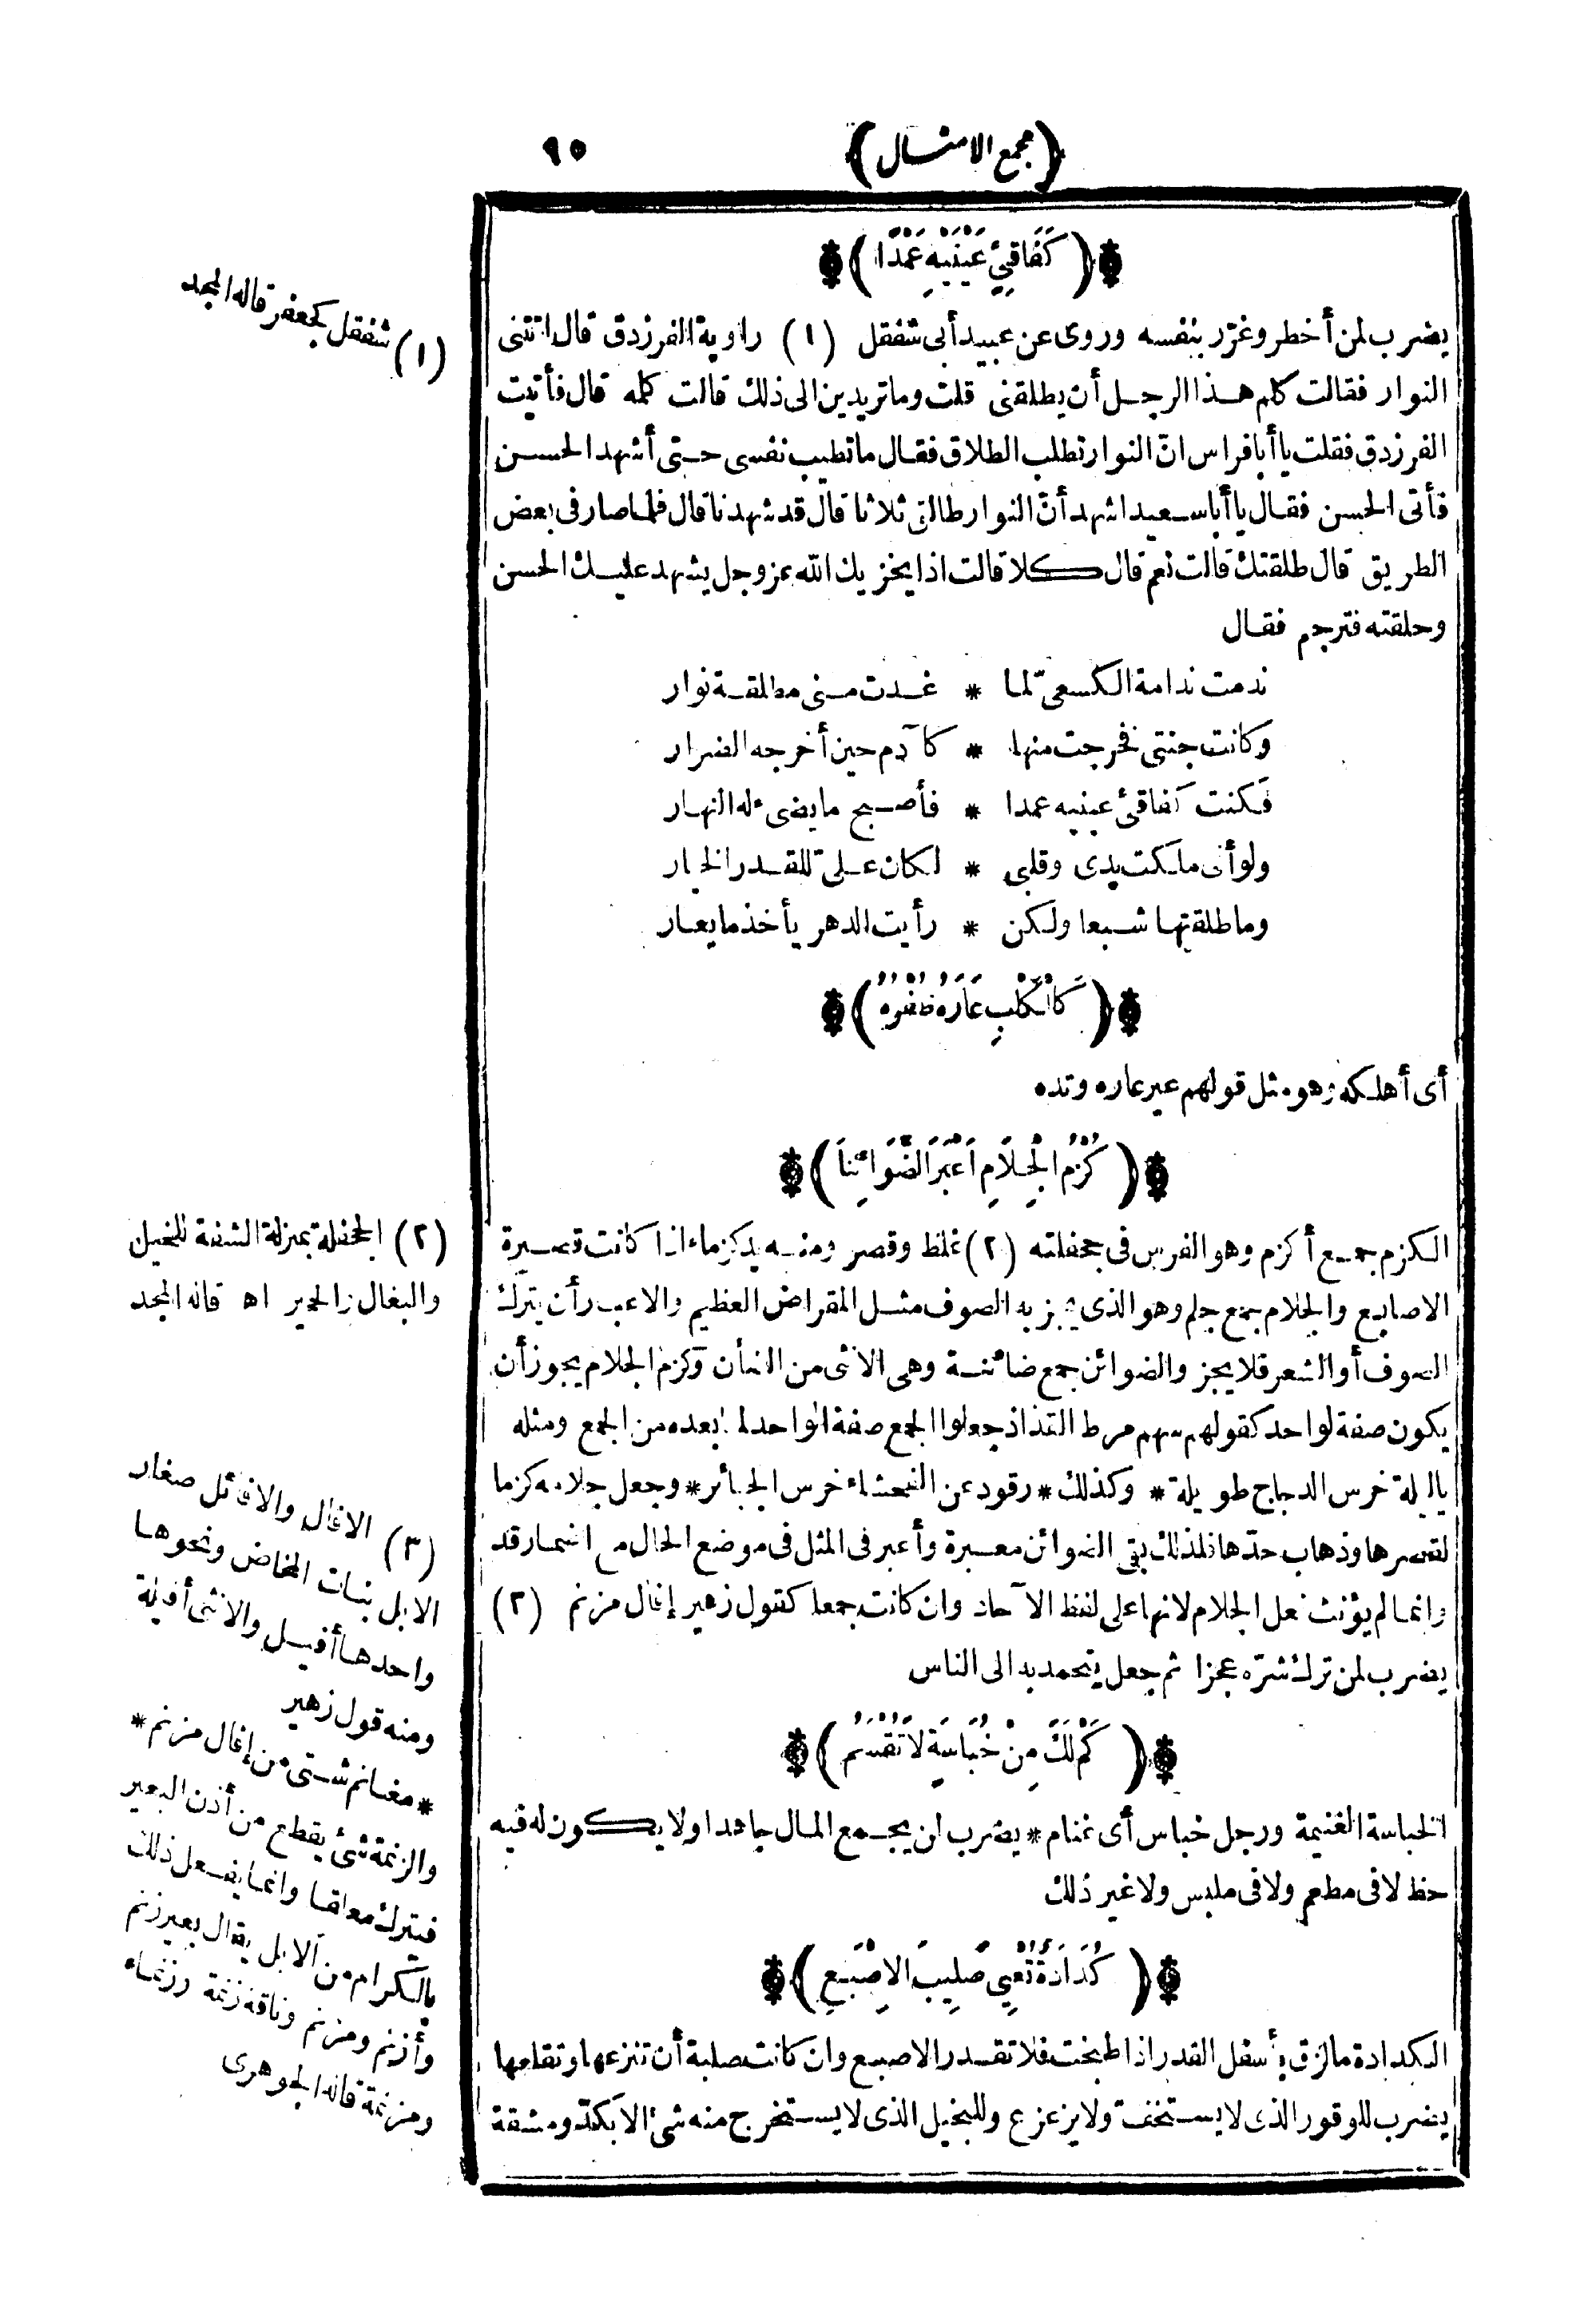 (مجمع الامثال) ٩٥
(كَفَاقِئِ عَيْنَيْهِ عَمْدًا)
يضرب لمن أخطر وغرّر بنفسه وروى عن عبيد أبى شفقل (١) راوية الفرزدق قال اتتنى
النوار فقالت كلم هذا الرجل أن يطلقنى قلت وما تريدين الى ذلك قالت كلمه قال فأتيت
الفرزدق فقلت يا أبا فراس انّ النوار تطلب الطلاق فقال ما تطيب نفسى حتى أشهد الحسن
فأتى الحسن فقال يا أبا سعيد اشهد أنّ النوار طالق ثلاثا قال قد شهدنا قال فلما صار فى بعض
الطريق قال طلقتك قالت نعم قال كلا قالت اذا يخزيك الله عز وجل يشهد عليك الحسن
وحلقته فترجم فقال
ندمت ندامة الكسعىّ لما * غدت منى مطلقة نوار
وكانت جنتى فخرجت منها * كآدم حين أخرجه الضرار
فكنت كفاقئ عينيه عمدا * فأصبح ما يضىء له النهار
ولو أنى ملكت يدى وقلبى * لكان علىّ للقدر الخيار
وما طلقتها شبعا ولكن * رأيت الدهر يأخذ ما يعار
(كَالْكَلْبِ عَارَهُ ظُفْرُهُ)
أى أهلكه وهو مثل قولهم عير عاره وتده
(كُزْمُ الْجِلَامِ أَعْبَرَ الضَّوَائِنَا)
الكزم جمع أكزم وهو الفرس فى جحفلته (٢) غلظ وقصر ومنه يد كزماء اذا كانت قصيرة
الاصابع والجلام جمع جلم وهو الذى يجز به الصوف مثل المقراض العظيم والاعبار أن يترك
الصوف أو الشعر فلا يجز والضوائن جمع ضائنة وهى الانثى من الضأن وكزم الجلام يجوز أن
يكون صفة لواحد كقولهم سهم مرط القذاذ جعلوا الجمع صفة الواحد لما بعده من الجمع ومثله
يا ليلة خرس الدجاج طويلة * وكذلك * رقود عن الفحشاء خرس الجبائر * وجعل جلامه كزما
لقصرها وذهاب حدّها فلذلك بقى الضوائن معبرة وأعبر فى المثل فى موضع الحال مع اضمار قد
وانما لم يؤنث فعل الجلام لانها على لفظ الآحاد وان كانت جمعا كقول زهير إفال مزنم (٢)
يضرب لمن ترك شرّه عجزا ثم جعل يتحمد به الى الناس
(كَمْ لَكَ مِنْ خُبَاسَةٍ لَا تُقْسَمُ)
الخباسة الغنيمة ورجل خباس أى غنام * يضرب لمن يجمع المال جاهدا ولا يكون له فيه
حظ لا فى مطعم ولا فى ملبس ولا غير ذلك
(كُدَادَةٌ تُعْيِي صَلِيبَ الْاِصْبَعِ)
الكدادة ما لزق بأسفل القدر اذا طبخت فلا تقدر الاصبع وان كانت صلبة أن تنزعها وتقلعها
يضرب للوقور الذى لا يستخفّ ولا يزعزع وللبخيل الذى لا يستخرج منه شئ الا بكدّ ومشقة
(١) شفقل كجعفر قاله المجد
(٢) الجحفلة بمنزلة الشفة للخيل
والبغال والحمير اه قاله المجد
(٣) الافال والافائل صغار
الابل بنات المخاض ونحوها
واحدها أفيل والانثى أفيلة
ومنه قول زهير
* مغانم شتى من إفال مزنم *
والزنمة شئ يقطع من أذن البعير
فيترك معلقا وانما يفعل ذلك
بالكرام من الابل يقال بعير زنم
وأزنم ومزنم وناقة زنمة وزنماء
ومزنمة قاله الجوهرى